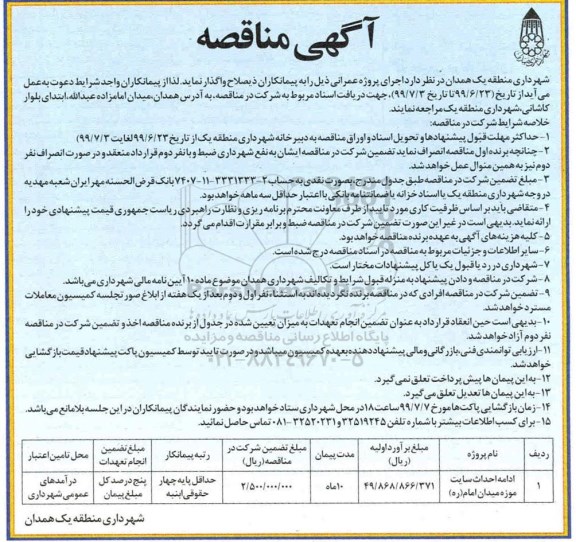 آگهی مناقصه
شهرداری منطقه یک همدان در نظر دارد اجرای پروژه عمرانی ذیل را به پیمانکاران ذیصلاح واگذار نماید. لذا از پیمانکاران واجد شرایط دعوت به عمل
می‌آید از تاریخ (۹۹/۶/۲۳ تا تاریخ ۹۹/۷/۳)، جهت دریافت اسناد مربوط به شرکت در مناقصه، به آدرس همدان، میدان امامزاده عبدالله، ابتدای بلوار
کاشانی، شهرداری منطقه یک مراجعه نمایند.
خلاصه شرایط شرکت در مناقصه:
۱- حداکثر مهلت قبول پیشنهادها و تحویل اسناد و اوراق مناقصه به دبیرخانه شهرداری منطقه یک از تاریخ ۹۹/۶/۲۳ لغایت ۹۹/۷/۳)
۲- چنانچه برنده اول مناقصه انصراف نماید تضمین شرکت در مناقصه ایشان به نفع شهرداری ضبط و با نفر دوم قرارداد منعقد و در صورت انصراف نفر
دوم نیز به همین منوال عمل خواهد شد.
۳- مبلغ تضمین شرکت در مناقصه طبق جدول مندرج، بصورت نقدی به حساب ۲-۳۳۳۱۳۳۳-۱۱-۷۴۰۷ بانک قرض الحسنه مهر ایران شعبه مهدیه
در وجه شهرداری منطقه یک یا اسناد خزانه یا ضمانتنامه بانکی با اعتبار حداقل سه ماهه خواهد بود.
۴- متقاضی باید بر اساس ظرفیت کاری مورد تأیید از طرف معاونت محترم برنامه ریزی و نظارت راهبردی ریاست جمهوری قیمت پیشنهادی خود را
ارائه نماید. بدیهی است در غیر این صورت تضمین شرکت در مناقصه ضبط و برابر مقررات اقدام می گردد.
۵- کلیه هزینه‌های آگهی به عهده برنده مناقصه خواهد بود.
۶- سایر اطلاعات و جزئیات مربوط به مناقصه در اسناد مناقصه درج شده است.
۷- شهرداری در رد یا قبول یک یا کل پیشنهادات مختار است.
۸- شرکت در مناقصه و دادن پیشنهاد به منزله قبول شرایط و تکالیف شهرداری همدان موضوع ماده ۱۰ آیین نامه مالی شهرداری می باشد.
۹- تضمین شرکت در مناقصه افرادی که در مناقصه برنده نگردیده‌اند به استثناء نفر اول و دوم بعد از یک هفته از ابلاغ صورتجلسه کمیسیون معاملات
مسترد خواهد شد.
۱۰- بدیهی است حین انعقاد قرارداد به عنوان تضمین انجام تعهدات به میزان تعیین شده در جدول از برنده مناقصه اخذ و تضمین شرکت در مناقصه
نفر دوم آزاد خواهد شد.
۱۱- ارزیابی توانمندی فنی، بازرگانی و مالی پیشنهاد دهنده بعهده کمیسیون میباشد و در صورت تایید توسط کمیسیون پاکت پیشنهاد قیمت بازگشایی
خواهد شد.
۱۲- به این پیمان‌ها پیش پرداخت تعلق نمی گیرد.
۱۳- به این پیمان‌ها تعدیل تعلق می گیرد.
۱۴- زمان بازگشایی پاکت‌ها مورخ ۹۹/۷/۷ ساعت ۱۸ در محل شهرداری ستاد خواهد بود و حضور نمایندگان پیمانکاران در این جلسه بلامانع می باشد.
۱۵- برای کسب اطلاعات بیشتر با شماره تلفن ۳۲۵۱۹۲۴۵ و ۳۲۵۲۰۲۳۱-۰۸۱ تماس حاصل نمائید.
ردیف نام پروژه مبلغ برآورد اولیه (ریال) مدت پیمان مبلغ تضمین شرکت در مناقصه (ریال) رتبه پیمانکار مبلغ تضمین انجام تعهدات محل تامین اعتبار
۱ ادامه احداث سایت موزه میدان امام (ره) ۴۹/۸۶۸/۸۶۶/۳۷۱ ۱۰ ماه ۲/۵۰۰/۰۰۰/۰۰۰ حداقل پایه چهار حقوقی ابنیه پنج درصد کل مبلغ پیمان درآمدهای عمومی شهرداری
شهرداری منطقه یک همدان
پایگاه اطلاع رسانی مناقصه و مزایده
۰۲۱-۸۸۳۴۹۶۷۰-۵